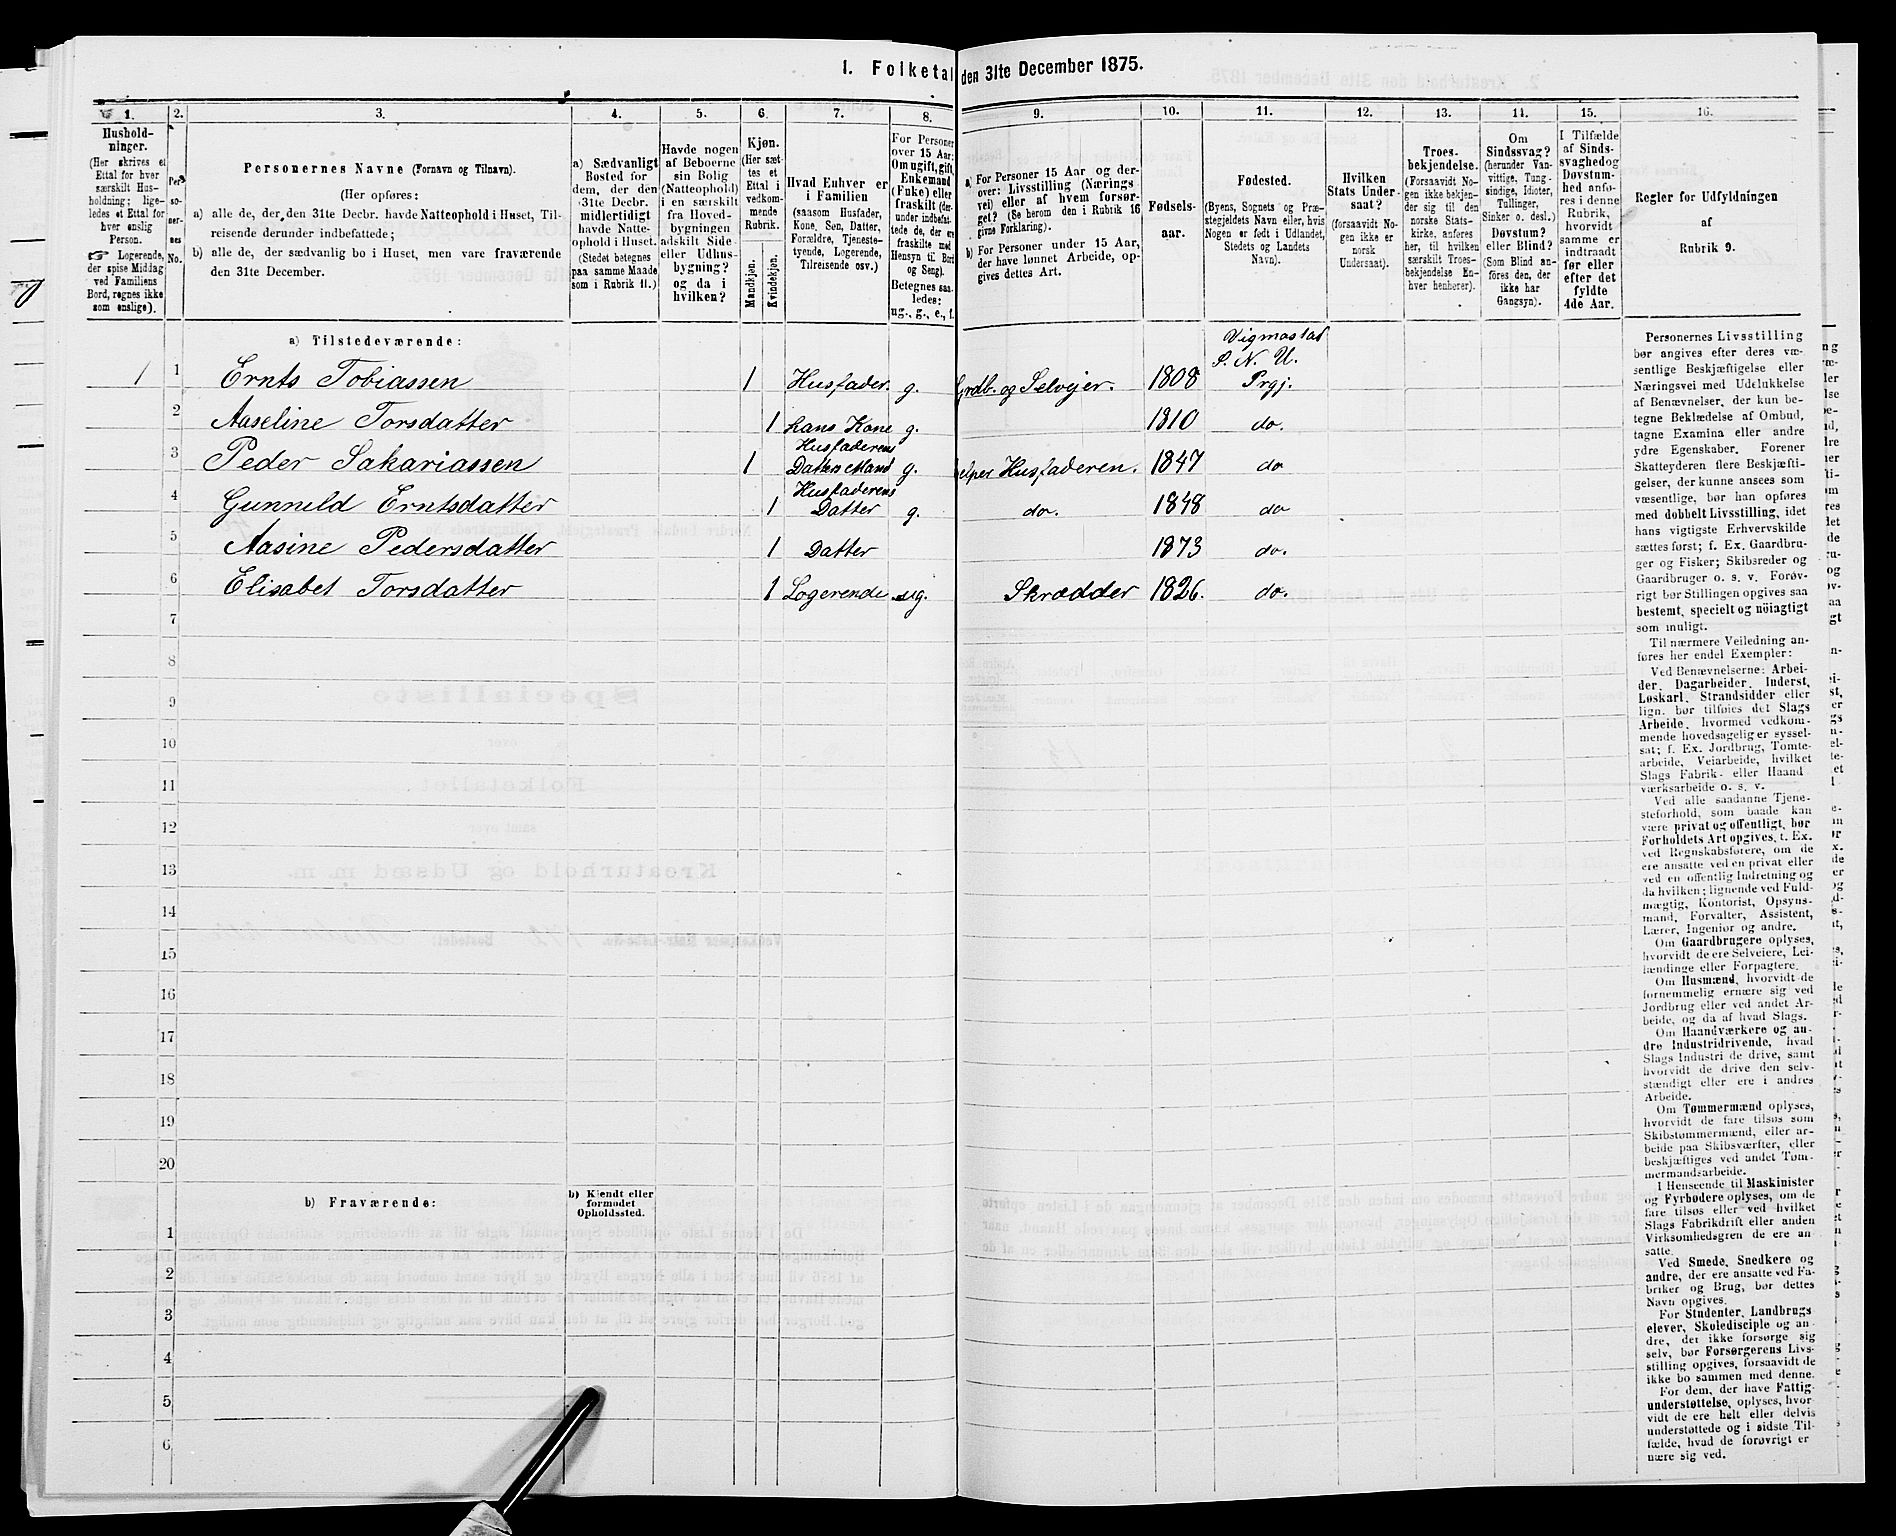 I. Folketal den 31te December 1875.
1. 2. 3. 4. 5. 6. 7. 8. 9. 10. 11. 12. 13. 14. 15. 16.
Hushold-
ninger.
(Her skrives et
Ettal for hver
særskilt Hus-
holdning; lige-
ledes et Ettal for
hver enslig
Person.
☞ Logerende,
der spise Middag
ved Familiens
Bord, regnes ikke
som enslige).
Per-
so-
ner-
nes
No.
Personernes Navne (Fornavn og Tilnavn).
(Her opføres:
a) alle de, der den 31te Decbr. havde Natteophold i Huset, Til-
reisende derunder indbefattede;
b) alle de, der sædvanlig bo i Huset, men vare fraværende
den 31te December.
a) Sædvanligt
Bosted for
dem, der den
31te Decbr.
midlertidigt
havde Natte-
ophold i Huset.
(Stedet betegnes
paa samme Maade
som i Rubrik 11.)
Havde nogen
af Beboerne
sin Bolig
(Natteophold)
i en særskilt
fra Hoved-
bygningen
adskilt Side-
eller Udhus-
bygning?
og da i
hvilken?
Kjøn.
(Her sæt-
tes et
Ettal i
vedkom-
mende
Rubrik.
Mandkjøn.
Kvindekjøn.
Hvad Enhver er
i Familien
(saasom Husfader,
Kone, Søn, Datter,
Forældre, Tjeneste-
tyende, Logerende,
Tilreisende osv.)
For Personer
over 15 Aar:
Om ugift, gift,
Enkemand
(Enke) eller
fraskilt (der-
under indbefat-
tede de, der ere
fraskilte med
Hensyn til Bord
og Seng).
Betegnes saa-
ledes:
ug., g., e., f.
a) For Personer 15 Aar og der-
over: Livsstilling (Nærings-
vei) eller af hvem forsør-
get? (Se herom den i Rubrik 16
givne Forklaring).
b) For Personer under 15 Aar,
der have lønnet Arbeide, op-
gives dettes Art.
Fødsels-
aar.
Fødested.
(Byens, Sognets og Præ-
stegjeldets Navn eller, hvis
Nogen er født i Udlandet,
Stedets og Landets
Navn).
Hvilken
Stats Under-
saat?
(forsaavidt No-
gen ikke er
norsk
Undersaat).
Troes-
bekjendelse.
(Forsaavidt No-
gen ikke bekjen-
der sig til den
norske Stats-
kirke, anføres
her, til hvilken
særskilt Troes-
bekjendelse En-
hver henhører).
Om
Sindssvag?
(herunder Van-
vittige, Tung-
sindige, Idioter,
Tullinger,
Sinker o. desl.)
Døvstum?
eller Blind?
(Som Blind an-
føres den, der
ikke har
Gangsyn).
I Tilfælde
af Sinds-
svaghed og
Døvstum-
hed anfø-
res i denne
Rubrik,
hvorvidt
samme er
indtraadt
før eller
efter det
fyldte
4de Aar.
Regler for Udfyldningen
af
Rubrik 9.
a) Tilstedeværende:
Vigmostad
S. N. U.
1 1 Ernts Tobiassen 1 Husfader. g. Grdb. og Selvejer. 1808 Prgj.
2 Aaseline Torsdatter 1 hans Kone g. 1810 do.
Husfaderens
3 Peder Sakariassen 1 Datters Mand g. hjelper Husfaderen. 1847 do
Husfaderens
4 Gunneld Erntsdatter 1 Datter g. do. 1848 do
5 Aasine Pedersdatter 1 Datter 1873 do.
6 Elisabet Torsdatter 1 Logerende ug. Skrædder 1826. do.
7
8
9
10
11
12
13
14
15
16
17
18
19
20
b) Fraværende:
b) Kjendt eller
formodet
Opholdssted.
1
2
3
4
5
6
Personernes Livsstilling
bør angives efter deres væ-
sentlige Beskjæftigelse eller
Næringsvei med Udelukkelse
af Benævnelser, der kun be-
tegne Beklædelse af Ombud,
tagne Examina eller andre
ydre Egenskaber. Forener
Skatteyderen flere Beskjæfti-
gelser, der kunne ansees som
væsentlige, bør han opføres
med dobbelt Livsstilling, idet
hans vigtigste Erhvervskilde
sættes først; f. Ex. Gaardbru-
ger og Fisker; Skibsreder og
Gaardbruger o. s. v. Forøv-
rigt bør Stillingen opgives saa
bestemt, specielt og nöiagtigt
som muligt.
Til nærmere Veiledning an-
føres her endel Exempler:
Ved Benævnelserne: Arbei-
der, Dagarbeider, Inderst,
Løskarl, Strandsidder eller
lign. bør tilføies det Slags
Arbeide, hvormed vedkom-
mende hovedsagelig er syssel-
sat; f. Ex. Jordbrug, Tomte-
arbeide, Veiarbeide, hvilket
Slags Fabrik- eller Haand
værksarbeide o. s. v.
Ved alle saadanne Tjene-
steforhold, som baade kan
være privat og offentligt, bør
Forholdets Art opgives, t. Ex.
ved Regnskabsførere, om de
ere ansatte ved en privat eller
ved en offentlig Indretning og
da hvilken; lignende ved Fuld-
mægtig, Kontorist, Opsyns-
mand, Forvalter, Assistent,
Lærer, Ingeniør og andre.
Om Gaardbrugere oplyses,
hvorvidt de ere Selveiere, Lei-
lændinge eller Forpagtere.
Om Husmænd, hvorvidt de
fornemmelig ernære sig ved
Jordbrug eller ved andet Ar-
beide, og da af hvad Slags.
Om Haandværkere og an-
dre Industridrivende, hvad
Slags Industri de drive, samt
hvorvidt de drive den selv-
stændigt eller ere i andres
Arbeide.
Om Tømmermænd oplyses,
hvorvidt de fare tilsøs som
Skibstømmermænd, eller ar-
beide paa Skibsværfter, eller
beskjæftiges ved andet Tøm-
mermandsarbeide.
I Henseende til Maskinister
og Fyrbødere oplyses, om de
fare tilsøs eller ved hvilket
Slags Fabrikdrift eller anden
Virksomhedsgren de ere an-
satte.
Ved Smede, Snedkere og
andre, der ere ansatte ved Fa-
briker og Brug, bør dettes
Navn opgives.
For Studenter, Landbrugs
elever, Skoledisciple og an-
dre, der ikke forsørge sig
selv, bør Forsørgerens Livs-
stilling opgives, forsaavidt de
ikke bo sammen med denne.
For dem, der have Fattig-
understøttelse, oplyses, hvor-
vidt de ere helt eller delvis
understøttede og i sidste Til-
fælde, hvad de forøvrigt er
nære sig ved.